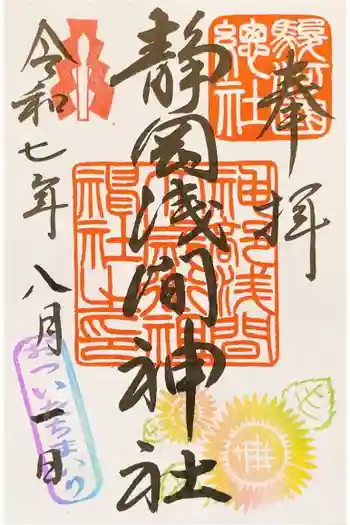 奉拝
駿河國
總社
静岡浅間神社
神部浅間
大歳御祖
神社之印
令和七年八月一日
おついたちまいり